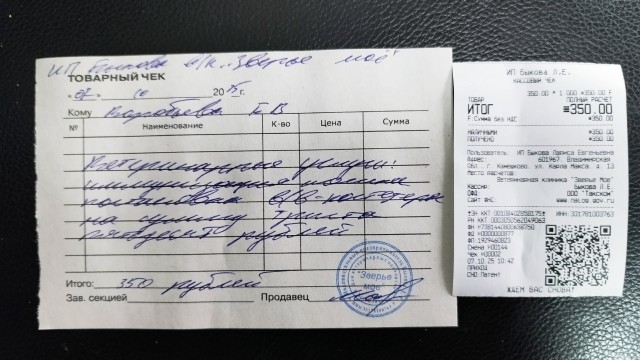 ИП Быкова в/к "Зверье моё"
ТОВАРНЫЙ ЧЕК
"07" 10 2025г.
Кому Воробьева Е В
№ Наименование К-во Цена Сумма
Ветеринарные услуги:
постановка в/в катетера
на сумму триста
пятьдесят рублей
Итого: 350 рублей
Зав. секцией Продавец
"Зверье
мое"
ИП Быкова Л.Е.
КАССОВЫЙ ЧЕК
350.00 * 1.000 =350.00
ТОВАР ПОЛНЫЙ РАСЧЕТ
ИТОГ =350.00
Сумма без НДС =350.00
НАЛИЧНЫМИ =350.00
ПОЛУЧЕНО =350.00
Пользователь: ИП Быкова Лариса Евгеньевна
Адрес: 601967, Владимирская
обл., г. Камешково, ул. Карла Маркса, д. 13
Место расчетов
Ветеринарная клиника "Зверье Мое"
Кассир Быкова Л.Е.
ОФД ООО "Такском"
Сайт ФНС www.nalog.gov.ru
Смена Н00144
Чек Н00002
07.10.25 10:42
ПРИХОД
СНО:Патент
ЖДЕМ ВАС СНОВА!